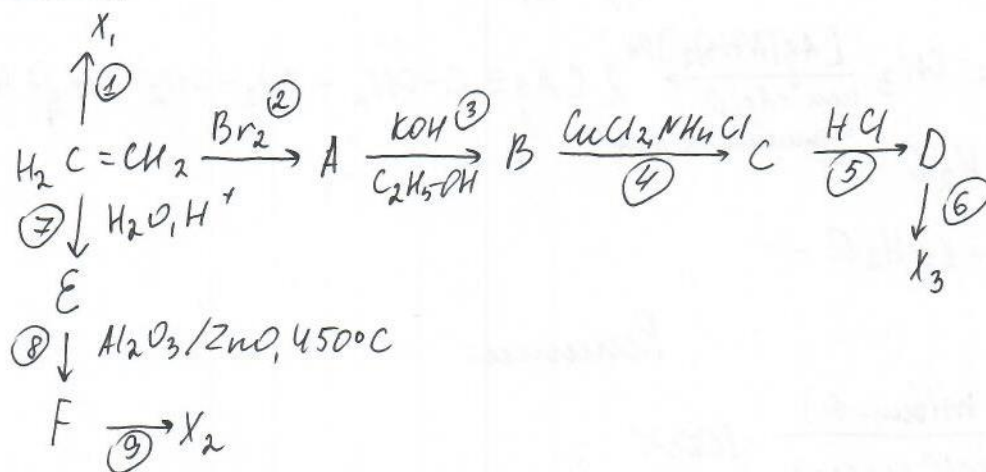 X₁
①
H₂C=CH₂ Br₂ ② A KOH ③ C₂H₅OH B CuCl₂,NH₄Cl ④ C HCl ⑤ D
⑦ H₂O,H⁺ ⑥
E X₃
⑧ Al₂O₃/ZnO,450°C
F ⑨ X₂